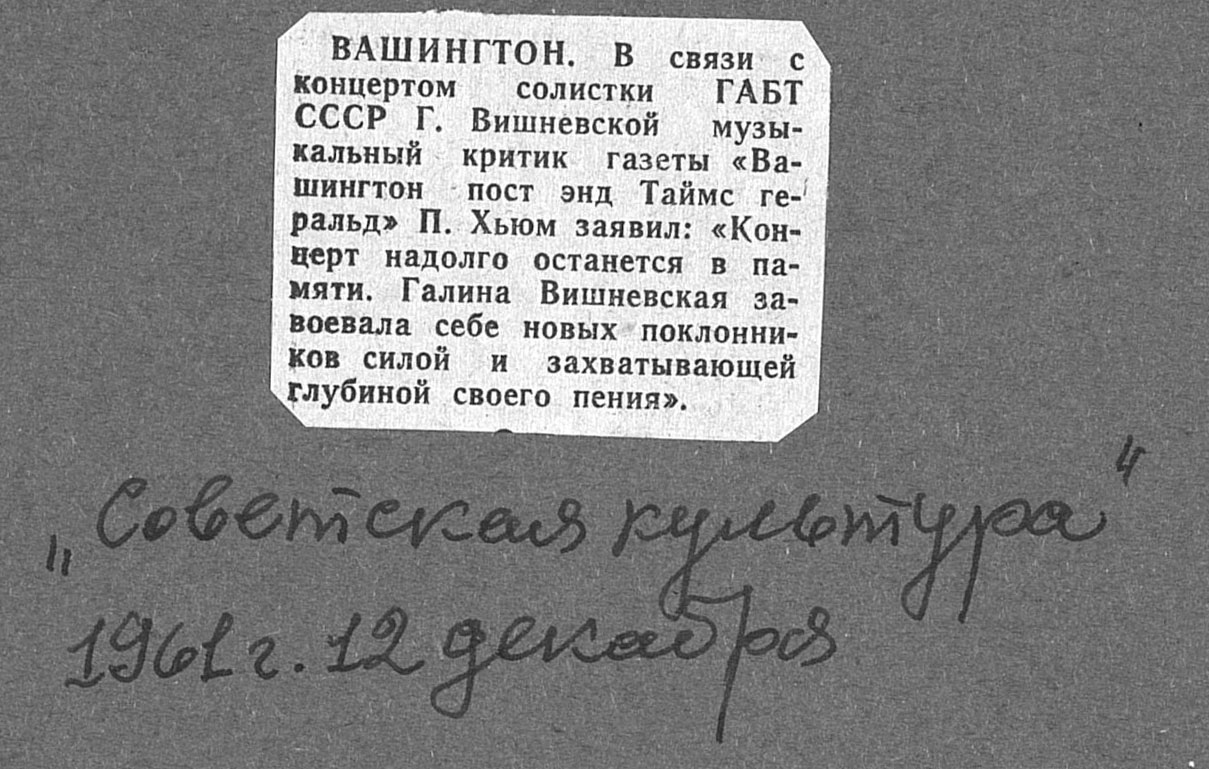 ВАШИНГТОН. В связи с
концертом солистки ГАБТ
СССР Г. Вишневской музы-
кальный критик газеты «Ва-
шингтон пост энд Таймс ге-
ральд» П. Хьюм заявил: «Кон-
церт надолго останется в па-
мяти. Галина Вишневская за-
воевала себе новых поклонни-
ков силой и захватывающей
глубиной своего пения».
„Советская культура"
1961 г. 12 декабря